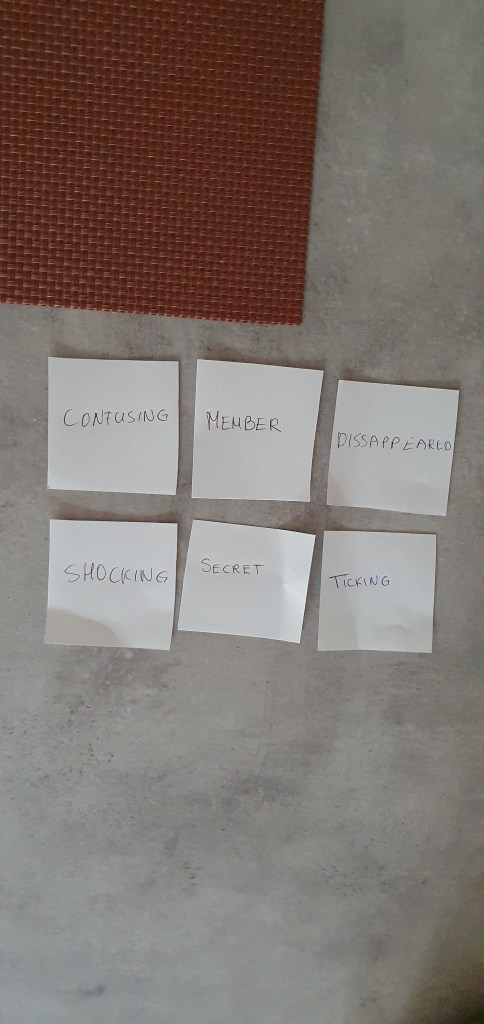 CONFUSING
MEMBER
DISSAPPEARED
SHOCKING
SECRET
TICKING